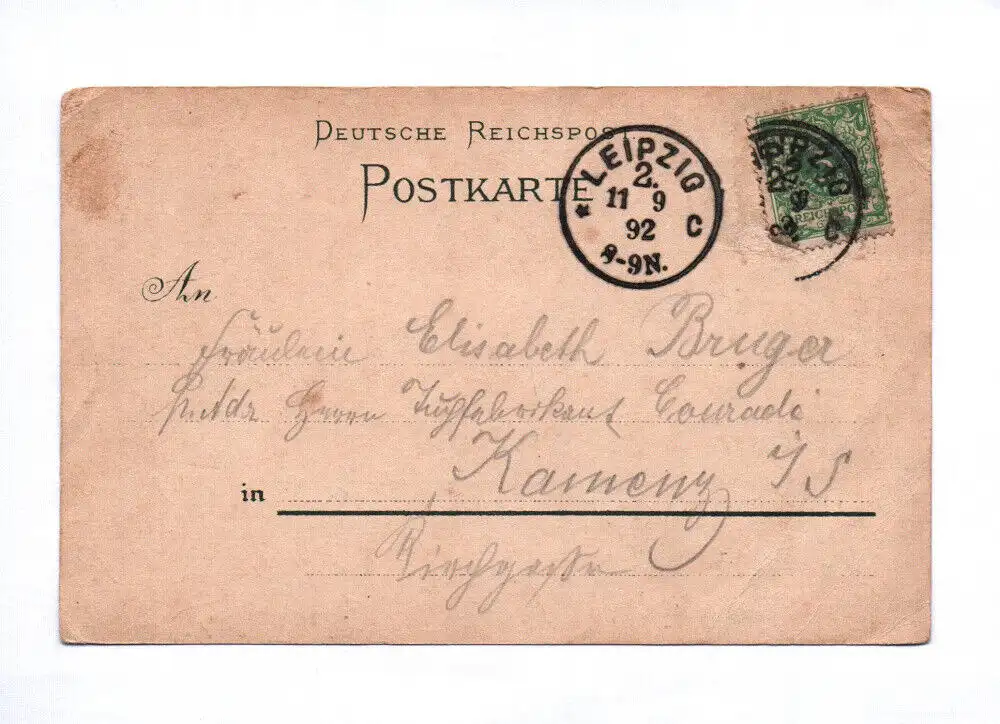 DEUTSCHE REICHSPOST
POSTKARTE
* LEIPZIG C
2.
11 9
92
8-9N.
LEIPZIG
C
REICHSPOST
An
Fräulein Elisabeth Bruger
p. Adr Herrn Tuchfabrikant Conradi
in Kamenz i/S
Kirchgasse